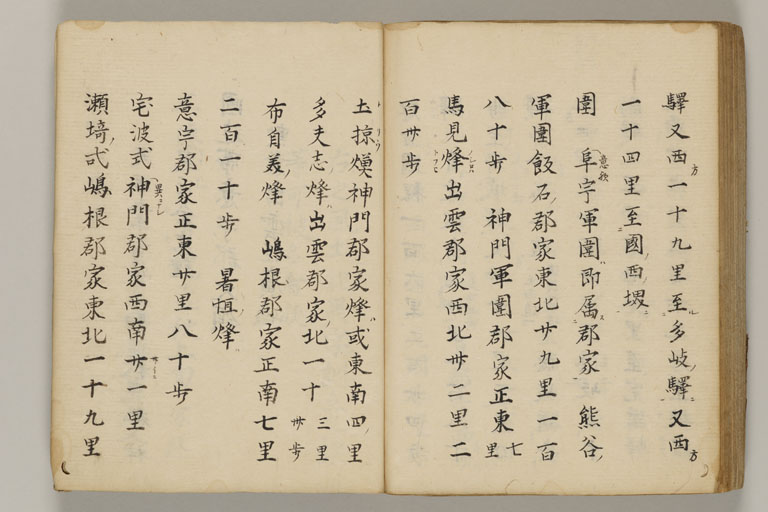 驛又西一十九里至多岐驛又西
一十四里至國西堺
圍 阜宇軍圍即属郡家 熊谷
軍圍飯石郡家東北廿九里一百
八十歩 神門軍圍郡家正東七里
馬見烽出雲郡家西北卅二里二
百卅歩
土掠熯神門郡家烽或東南四里
多夫志烽出雲郡家北一十三里卅歩
布自羙烽 嶋根郡家正南七里
二百一十歩 暑恒烽
意宇郡家正東廿里八十歩
宅波式神門郡家西南卄一里
瀬埼式嶋根郡家東北一十九里